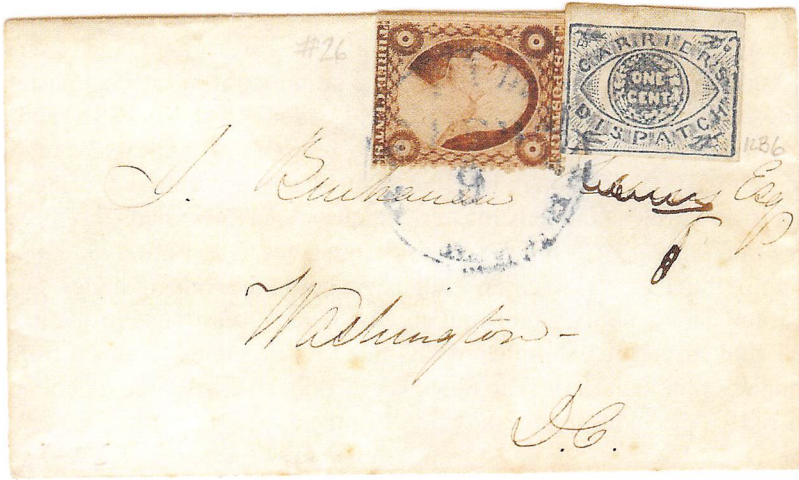 #26
THREE CENTS
U.S. POSTAGE
CARRIERS
ONE
CENT
DISPATCH
1LB6
9
J. Buchanan Henry Esq
P.
Washington
D.C.